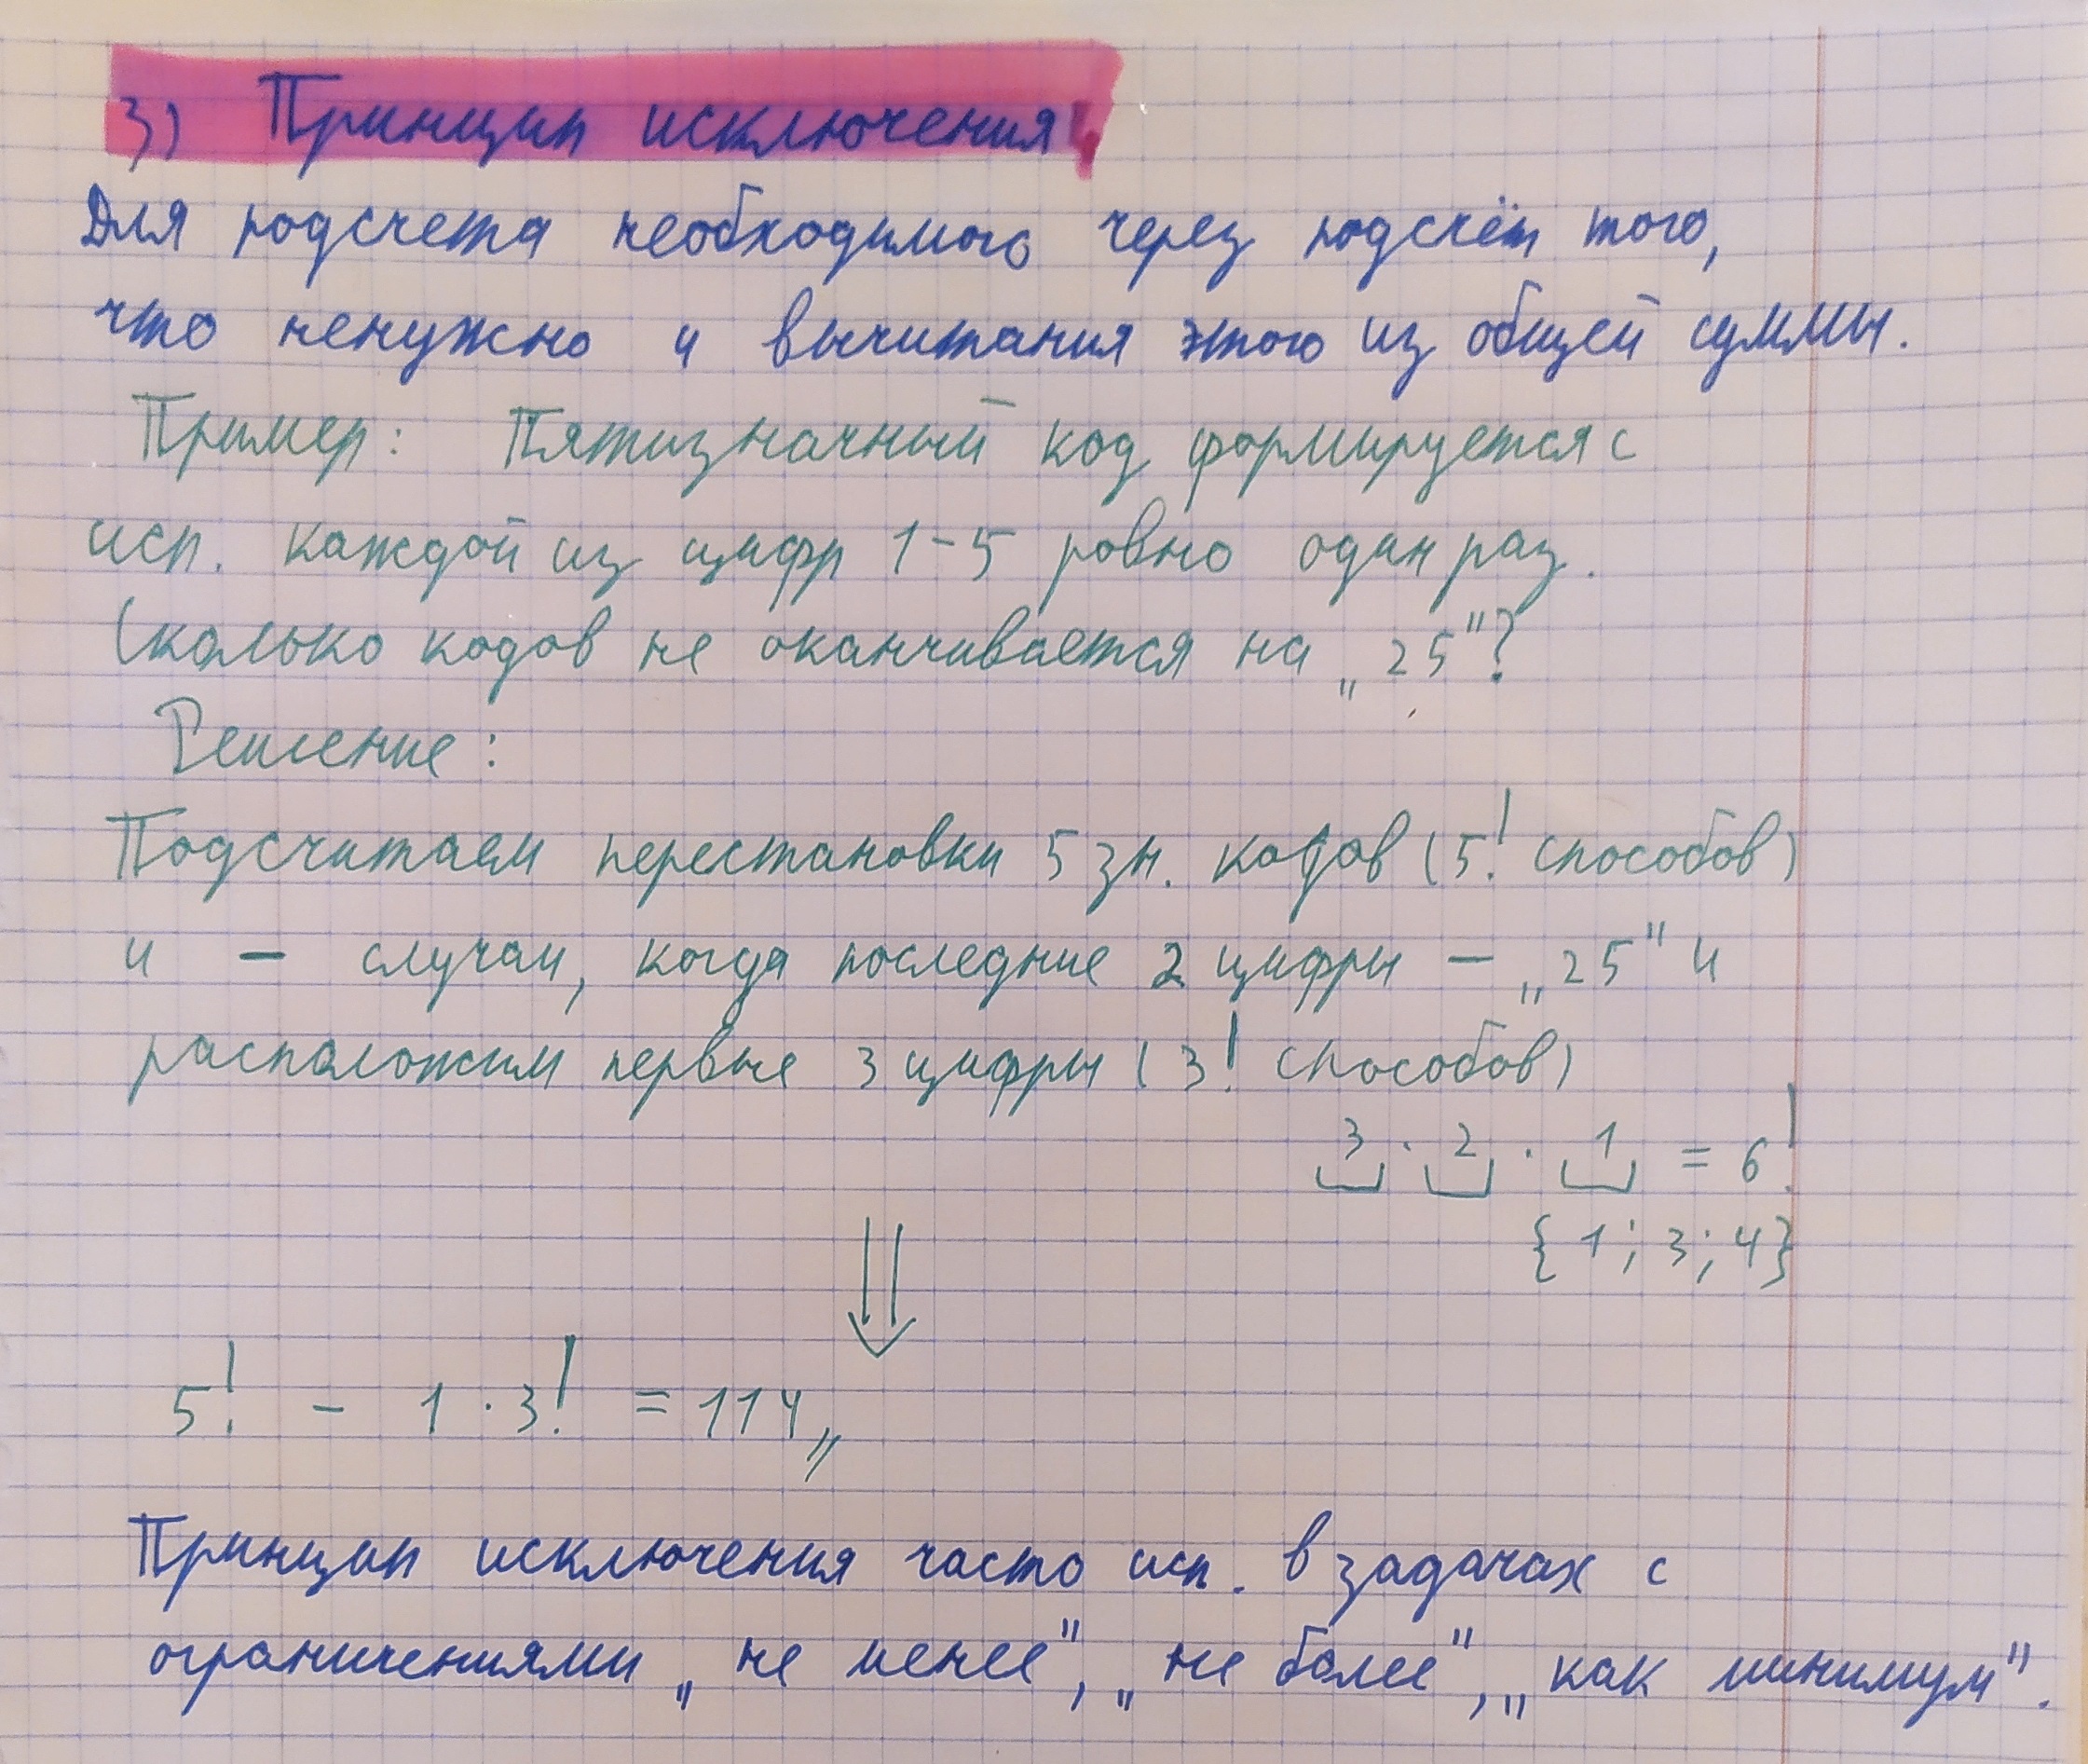 3) Принцип исключения
Для подсчета необходимого через подсчёт того,
что ненужно и вычитания этого из общей суммы.
Пример: Пятизначный код формируется с
исп. каждой из цифр 1-5 ровно один раз.
Сколько кодов не оканчивается на „25"?
Решение:
Подсчитаем перестановки 5 зн. кодов (5! способов)
и — случаи, когда последние 2 цифры — „25" и
расположим первые 3 цифры (3! способов)
3 · 2 · 1 = 6!
{1; 3; 4}
5! - 1 · 3! = 114
Принцип исключения часто исп. в задачах с
ограничениями „не менее", „не более", „как минимум".